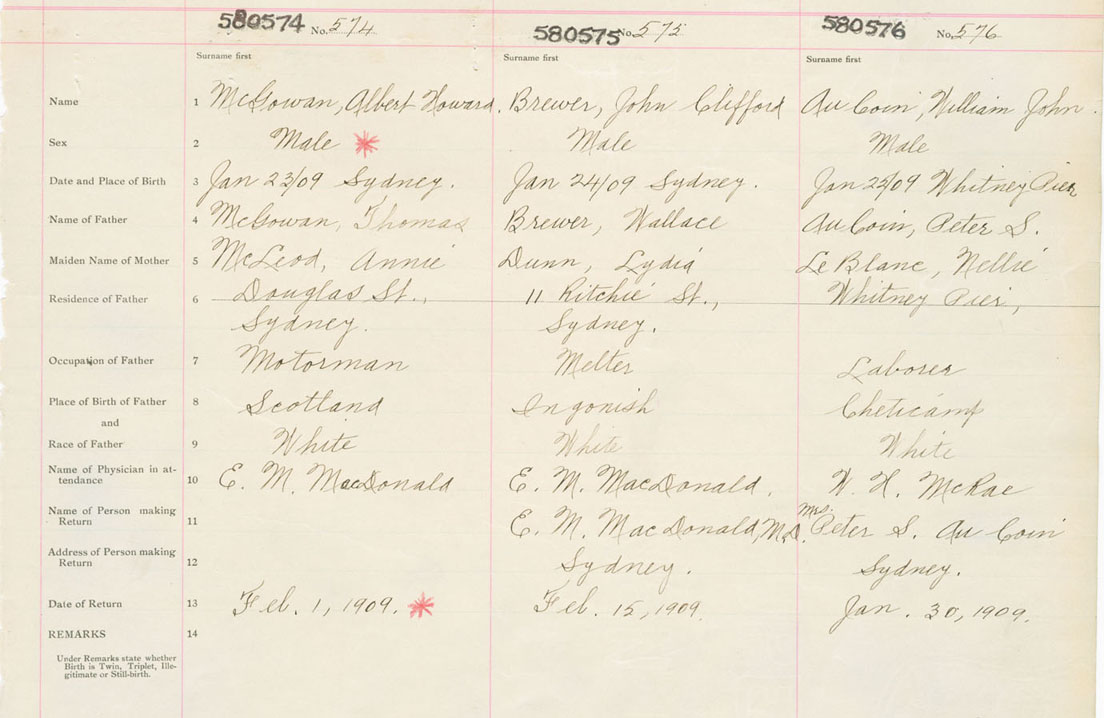 580574 No. 574 580575 No. 575 580576 No. 576
Surname first Surname first Surname first
Name 1 McGowan, Albert Howard. Brewer, John Clifford Au Coin, William John.
Sex 2 Male Male Male
Date and Place of Birth 3 Jan 23/09 Sydney. Jan 24/09 Sydney. Jan 25/09 Whitney Pier
Name of Father 4 McGowan, Thomas Brewer, Wallace Au Coin, Peter S.
Maiden Name of Mother 5 McLeod, Annie Dunn, Lydia Le Blanc, Nellie
Residence of Father 6 Douglas St., 11 Ritchie St., Whitney Pier,
Sydney. Sydney.
Occupation of Father 7 Motorman Melter Laborer
Place of Birth of Father 8 Scotland Ingonish Cheticamp
and
Race of Father 9 White White White
Name of Physician in at-
tendance 10 E. M. MacDonald E. M. MacDonald. W. H. McRae
Name of Person making
Return 11 E. M. MacDonald, M.D. Mrs. Peter S. Au Coin
Address of Person making
Return 12 Sydney. Sydney.
Date of Return 13 Feb. 1, 1909. Feb. 15, 1909. Jan. 30, 1909.
REMARKS 14
Under Remarks state whether
Birth is Twin, Triplet, Ille-
gitimate or Still-birth.